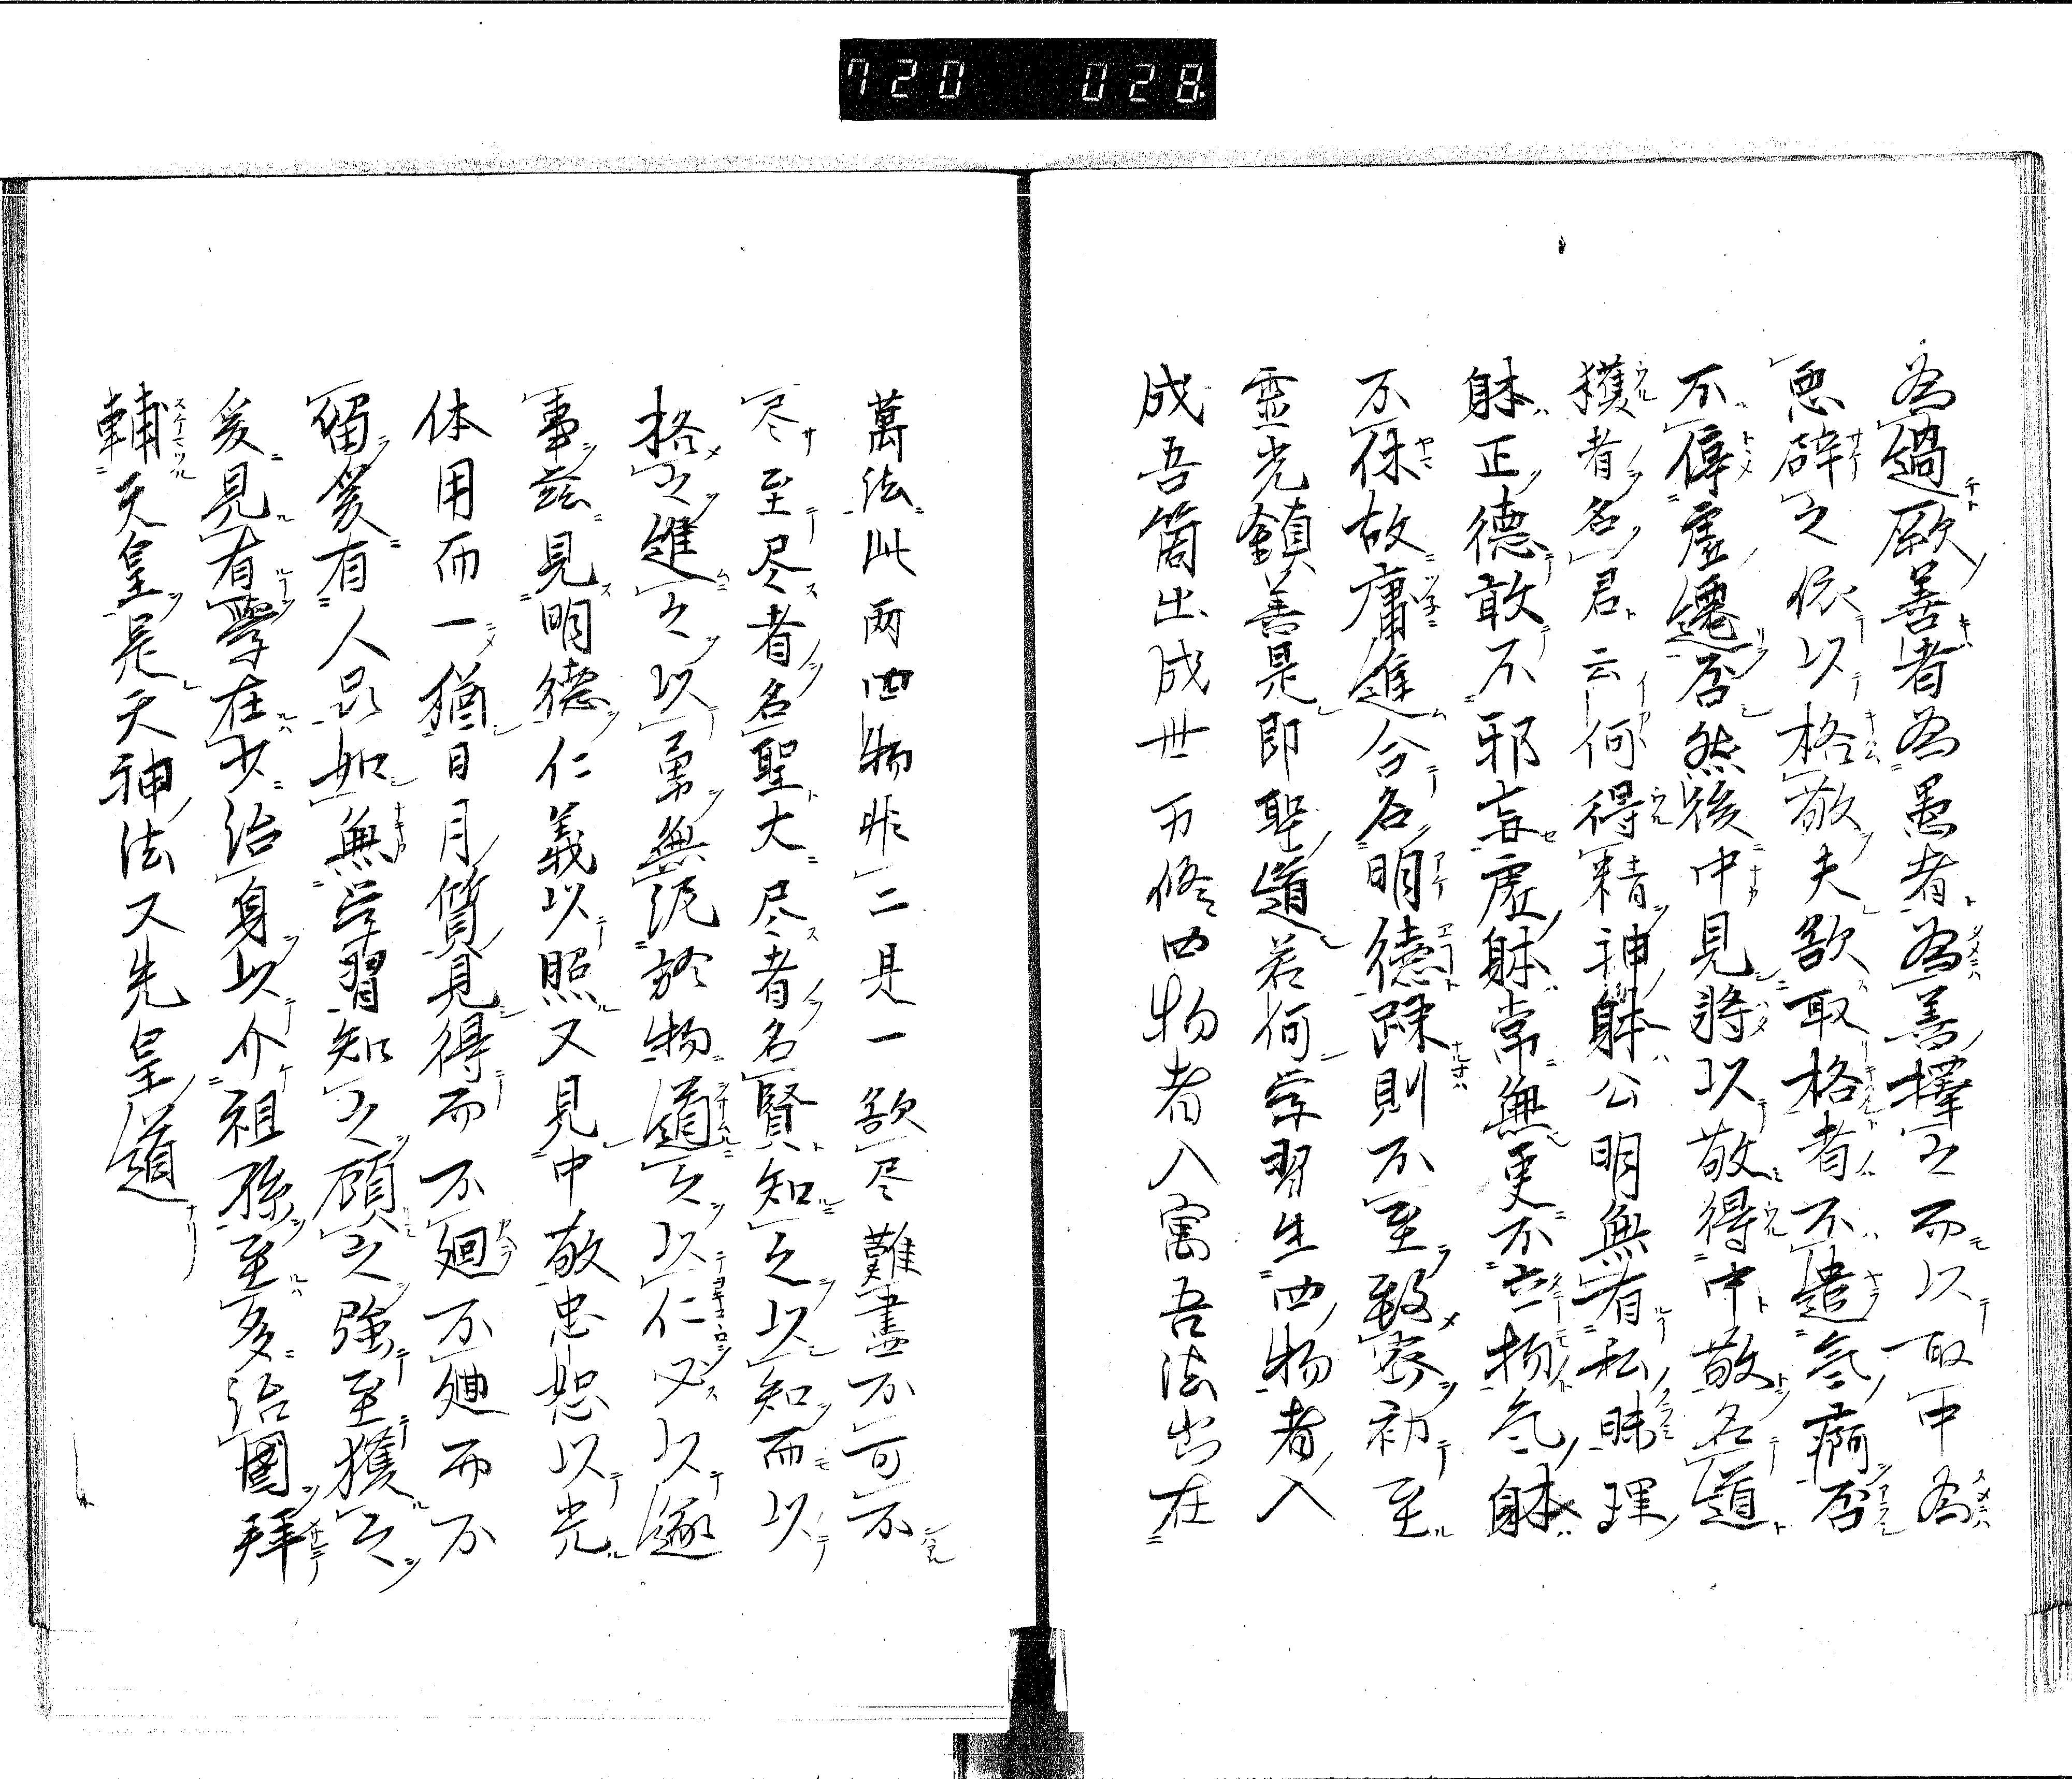 720 028
為過厥善者為愚者為善擇之而以取中為
悪辟之依以格敬夫欲取格者不遣気痾否
不停虚還否然後中見将以敬得中敬名道
獲者名君云何得精神躰公明無有私昧理
躰正徳敢不邪妄虚躰常無更不立物気躰
不休故庸進合名明徳踈則不至密初至
霊光鎮善是即聖道若何学習生四物者入
成吾箇出成世万修四物者入寓吾法出在
萬法此両四物非二是一欲尽難盡不可不
尽至尽者名聖大尽者名賢知之以知而以
格之進之以勇無泥於物道之以仁必以遂
事茲見明徳仁義以照又見中敬忠恕以光
体用而一猶日月質見得而不廻不廻而不
留爰有人品如無学習知之顧之強至獲之
爰見有學在少治身以介祖孫至多治國拜
輔天皇是天神法又先皇道